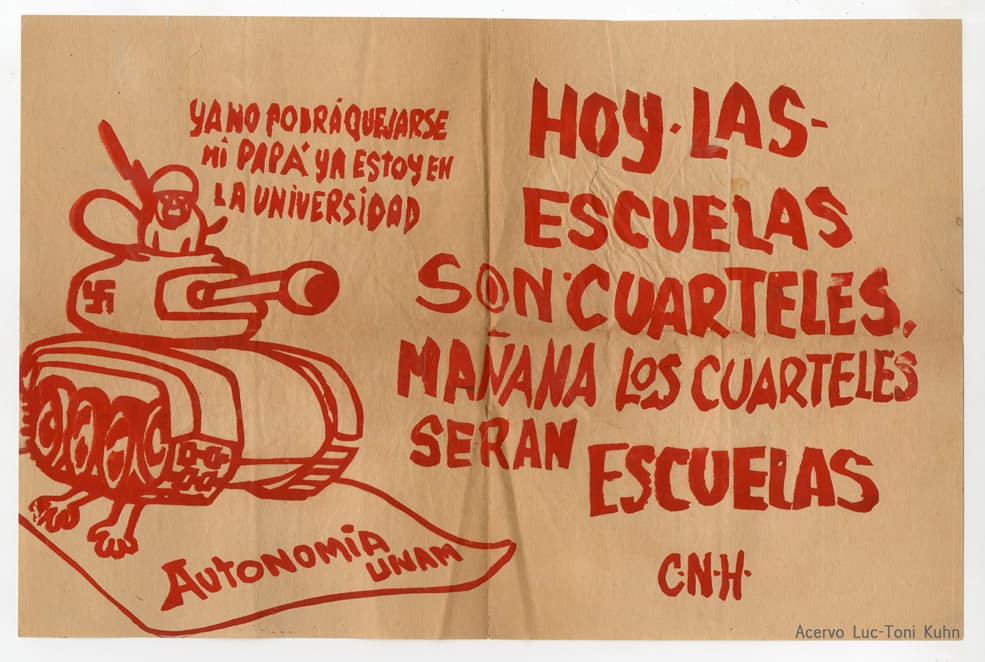 YA NO PODRÁ QUEJARSE
MI PAPÁ YA ESTOY EN
LA UNIVERSIDAD
HOY·LAS-
ESCUELAS
SON·CUARTELES,
MAÑANA LOS CUARTELES
SERAN
ESCUELAS
C·N·H·
AUTONOMIA
UNAM
Acervo Luc-Toni Kuhn